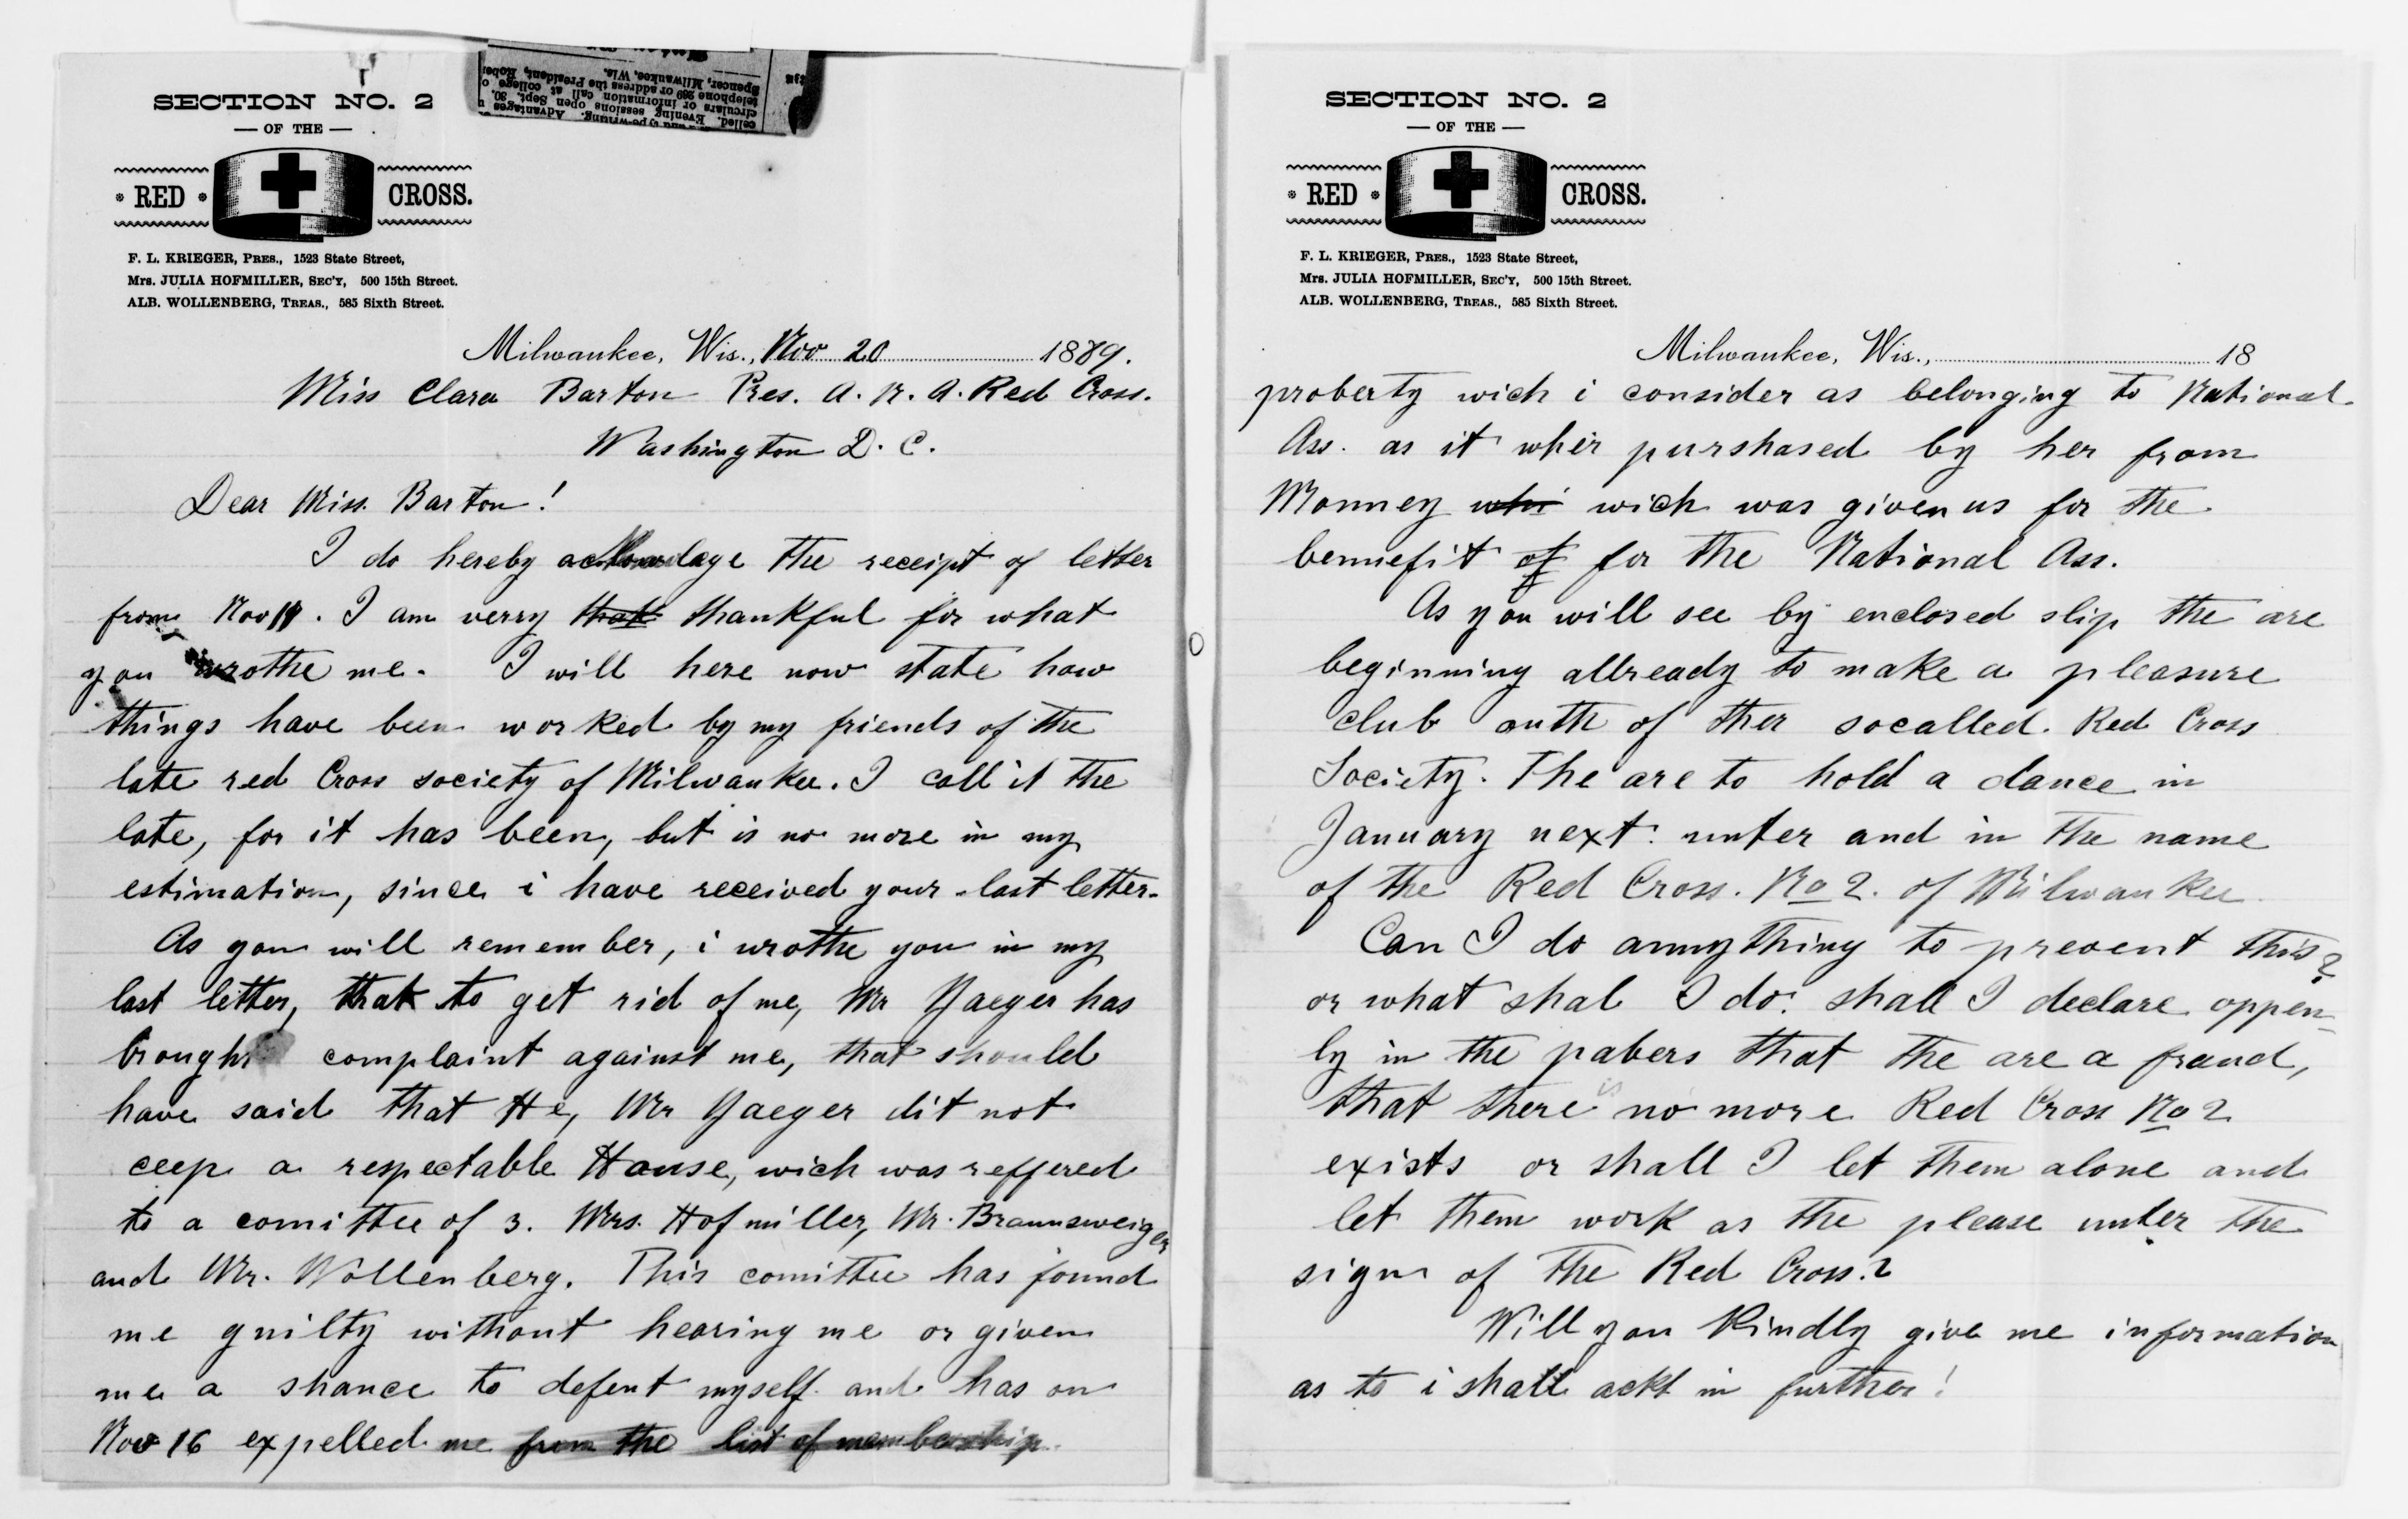 SECTION NO. 2
— OF THE —
RED CROSS.
F. L. KRIEGER, PRES., 1523 State Street,
Mrs. JULIA HOFMILLER, SEC'Y, 500 15th Street.
ALB. WOLLENBERG, TREAS., 585 Sixth Street.
Milwaukee, Wis., Nov 20 1889.
Miss Clara Barton Pres. A. N. A. Red Cross.
Washington D. C.
Dear Miss. Barton!
I do hereby acknowledage the receipt of letter
from Nov 11. I am verry that thankful for what
you wrothe me. I will here now state how
things have been worked by my friends of the
late red Cross society of Milwaukee. I call it the
late, for it has been, but is no more in my
estimation, since i have received your last letter.
As you will remember, i wrothe you in my
last letter, that to get rid of me, Mr Yaeger has
brought complaint against me, that should
have said that He, Mr Yaeger dit not
ceep a respectable House, wich was reffered
to a comitthe of 3. Mrs. Hofmiller, Mr. Braunsweiger
and Mr. Wollenberg. This comitthe has found
me guilty without hearing me or given
me a shance to defent myself and has on
Nov 16 expelled me from the list of membership.
celled. Evening sessions open Sept. 30.
circulars or information call at college
telephone 269 or address the President, Robe
Spencer, Milwaukee, Wis.
SECTION NO. 2
— OF THE —
RED CROSS.
F. L. KRIEGER, PRES., 1523 State Street,
Mrs. JULIA HOFMILLER, SEC'Y, 500 15th Street.
ALB. WOLLENBERG, TREAS., 585 Sixth Street.
Milwaukee, Wis., 18
proberty wich i consider as belonging to National
Ass. as it wher purshased by her from
Monney whi wich was given us for the
bennefit of for the National Ass.
As you will see by enclosed slip the are
beginning allready to make a pleasure
club outh of ther socalled. Red Cross
Society. The are to hold a dance in
January next. unter and in the name
of the Red Cross. No 2. of Milwaukee
Can I do annything to prevent this?
or what shal I do. shall I declare oppen-
ly in the pabers that the are a fraud,
that there is no more Red Cross No 2
exists or shall I let them alone and
let them work as the please unter the
sign of the Red Cross.?
Will you Kindly give me information
as to i shall ackt in further!